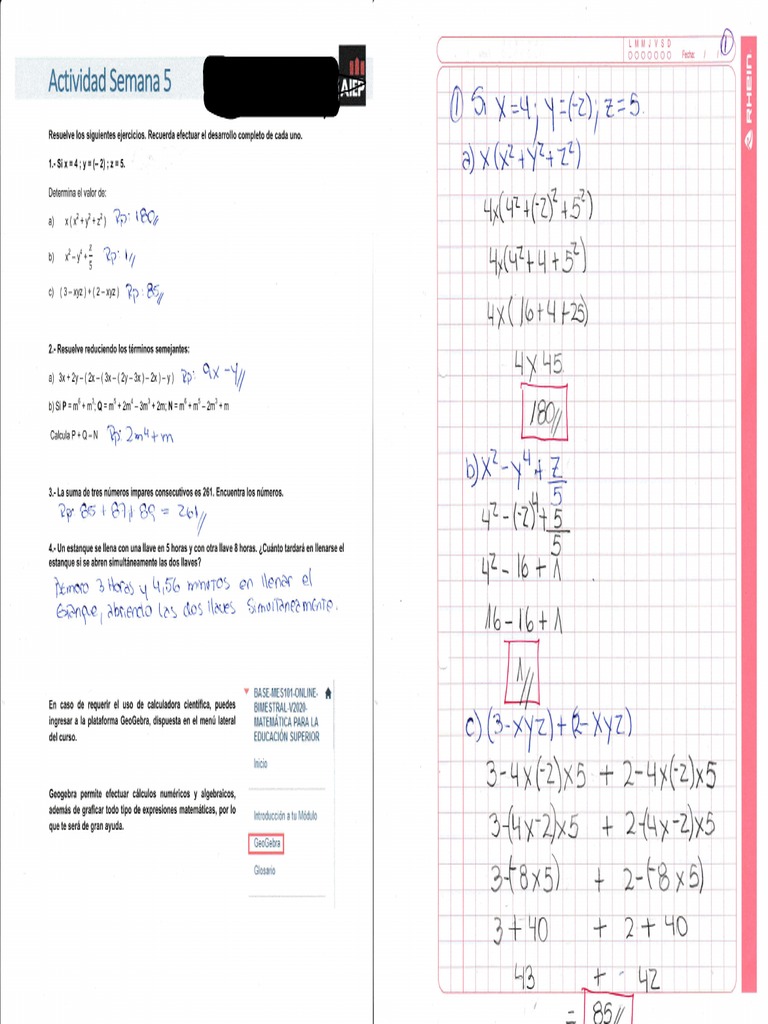 Actividad Semana 5
AIEP
Resuelve los siguientes ejercicios. Recuerda efectuar el desarrollo completo de cada uno.
1.- Si x = 4 ; y = (– 2) ; z = 5.
Determina el valor de:
a) x ( x² + y² + z² ) Rp: 180//
b) x² – y⁴ + z/5 Rp: 1//
c) ( 3 – xyz ) + ( 2 – xyz ) Rp: 85//
2.- Resuelve reduciendo los términos semejantes:
a) 3x + 2y – ( 2x – ( 3x – ( 2y – 3x ) – 2x ) – y ) Rp: 9x – y//
b) Si P = m⁶ + m³; Q = m⁵ + 2m⁴ – 3m³ + 2m; N = m⁶ + m⁵ – 2m³ + m
Calcula P + Q – N Rp: 2m⁴ + m
3.- La suma de tres números impares consecutivos es 261. Encuentra los números.
Rp: 85 + 87 + 89 = 261//
4.- Un estanque se llena con una llave en 5 horas y con otra llave 8 horas. ¿Cuánto tardará en llenarse el
estanque si se abren simultáneamente las dos llaves?
Demoro 3 Horas y 4,56 minutos en llenar el
Estanque, abriendo las dos llaves simultaneamente.
En caso de requerir el uso de calculadora científica, puedes
ingresar a la plataforma GeoGebra, dispuesta en el menú lateral
del curso.
Geogebra permite efectuar cálculos numéricos y algebraicos,
además de graficar todo tipo de expresiones matemáticas, por lo
que te será de gran ayuda.
BASE-MES101-ONLINE-
BIMESTRAL-V2020-
MATEMÁTICA PARA LA
EDUCACIÓN SUPERIOR
Inicio
Introducción a tu Módulo
GeoGebra
Glosario
L M M J V S D
Fecha: / /
1
RHEIN
1 Si x = 4 ; y = (-2) ; z = 5.
a) x (x² + y² + z²)
4x(4² + (-2)² + 5²)
4x(4² + 4 + 5²)
4x(16 + 4 + 25)
4 x 45
180//
b) x² – y⁴ + z/5
4² – (-2)⁴ + 5/5
4² – 16 + 1
16 – 16 + 1
1//
c) (3 – xyz) + (2 – xyz)
3 – 4x(-2)x5 + 2 – 4x(-2)x5
3 – (4x-2)x5 + 2 – (4x-2)x5
3 – (-8x5) + 2 – (-8x5)
3 + 40 + 2 + 40
43 + 42
= 85//